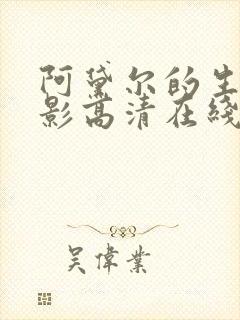 阿黛尔的生
影高清在线
吴偉業